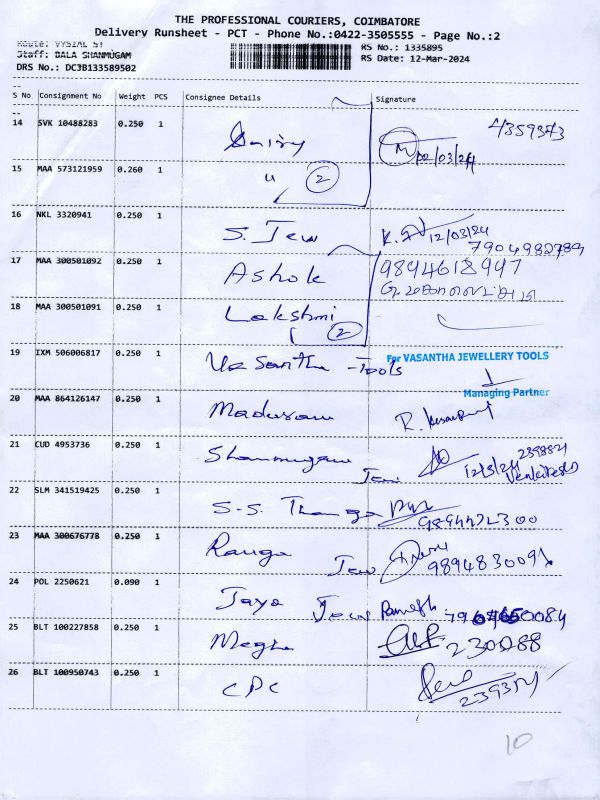 THE PROFESSIONAL COURIERS, COIMBATORE
Delivery Runsheet - PCT - Phone No.:0422-3505555 - Page No.:2
Route: VYSIAL ST
Staff: BALA SHANMUGAM
DRS No.: DCJB133589502
RS No.: 1335895
RS Date: 12-Mar-2024
S No Consignment No Weight PCS Consignee Details Signature
14 SVK 10488283 0.250 1
02/03/24
15 MAA 573121959 0.260 1 " 2
16 NKL 3320941 0.250 1 S. Jew
12/03/24
7904982789
17 MAA 300501092 0.250 1 Ashok 9894618947
18 MAA 300501091 0.250 1 Lakshmi
2
19 IXM 506006817 0.250 1 Vasantha - Tools
For VASANTHA JEWELLERY TOOLS
Managing Partner
20 MAA 864126147 0.250 1 Maduram
21 CUD 4953736 0.250 1 Shanmugam
Jew 12/3/24
22 SLM 341519425 0.250 1 S.S. Thanga
23 MAA 300676778 0.250 1 Ranga Jew
24 POL 2250621 0.090 1 Jaya Jew Ramesh
25 BLT 100227858 0.250 1 Megha 230088
26 BLT 100950743 0.250 1 CPC
10